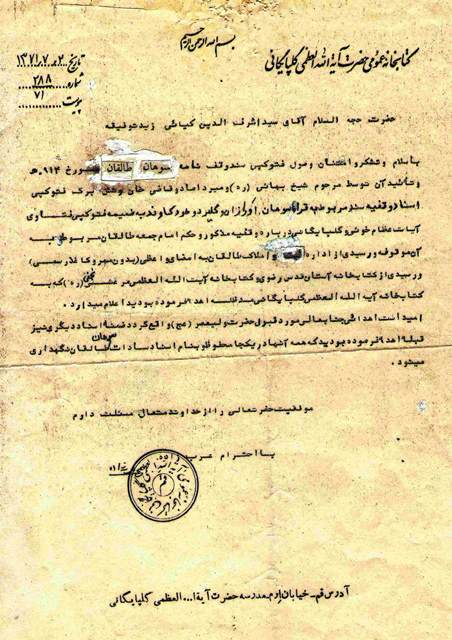 بسم الله الرحمن الرحیم
کتابخانه عمومی حضرت آیة الله العظمی گلپایگانی
تاریخ ۱۳۷۱٫۷٫۲
شماره ۲۸۸
پیوست ۷۱
حضرت حجه السلام آقای سید اشرف الدین کیائی زید توفیقه
باسلام وتشکر و امتنان وصول فتوکپی سند وقف نامه سوهان طالقان مورخ ۹۱۲ ه
وتأئید آن توسط مرحوم شیخ بهائی (ره) و میرداماد وفانی خان و شش برگ فتوکپی
اسناد وقفیه سند مربوط به قراء سوهان، اورازان وگلیرد و خودکاوند به ضمیمه فتوکپی فتاوی
آیات عظام خوئی وگلپایگانی درباره وقفیه مذکور وحکم امام جمعه طالقان مربوط به
آن موقوفه ورسیدی از اداره ثبت و املاک طالقان به امضای واعظی (بدون مهر و کاغذ رسمی)
ورسیدی از کتابخانه آستان قدس رضوی وکتابخانه آیت الله العظمی مرعشی نجفی (ره) که به
کتابخانه آیه الله العظمی گلپایگانی مدظله اهداء فرموده بودید اعلام میدارد.
امید است اهدائی جنابعالی مورد قبول حضرت ولیعصر (عج) واقع گردد ضمنا اسناد دیگری نیز
قبلا اهداء فرموده بودید که همه آنها در یکجا محفوظ و بنام اسناد سادات سوهان طالقان نگهداری
میشود.
موفقیت حضرتعالی را از خداوند متعال مسئلت دارم
با احترام عرب زاده
قم
آدرس قم - خیابان ارم - مدرسه حضرت آیة ا... العظمی گلپایگانی